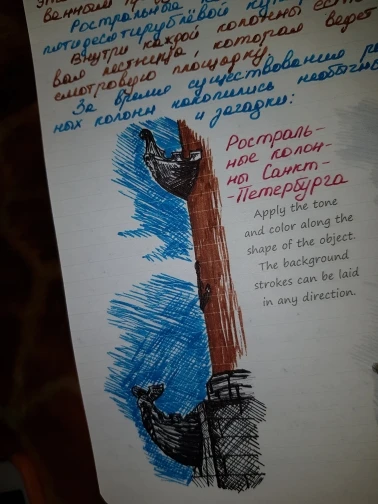 Ростральна
пятидесятирублёвой куп
Внутри каждой колонны есть
вая лестница, которая ведёт
смотровую площадку.
За время существования
ных колонн накопились необычн
и загадки:
Ростраль-
ные колон-
ны Санкт-
-Петербурга
Apply the tone
and color along the
shape of the object.
The background
strokes can be laid
in any direction.